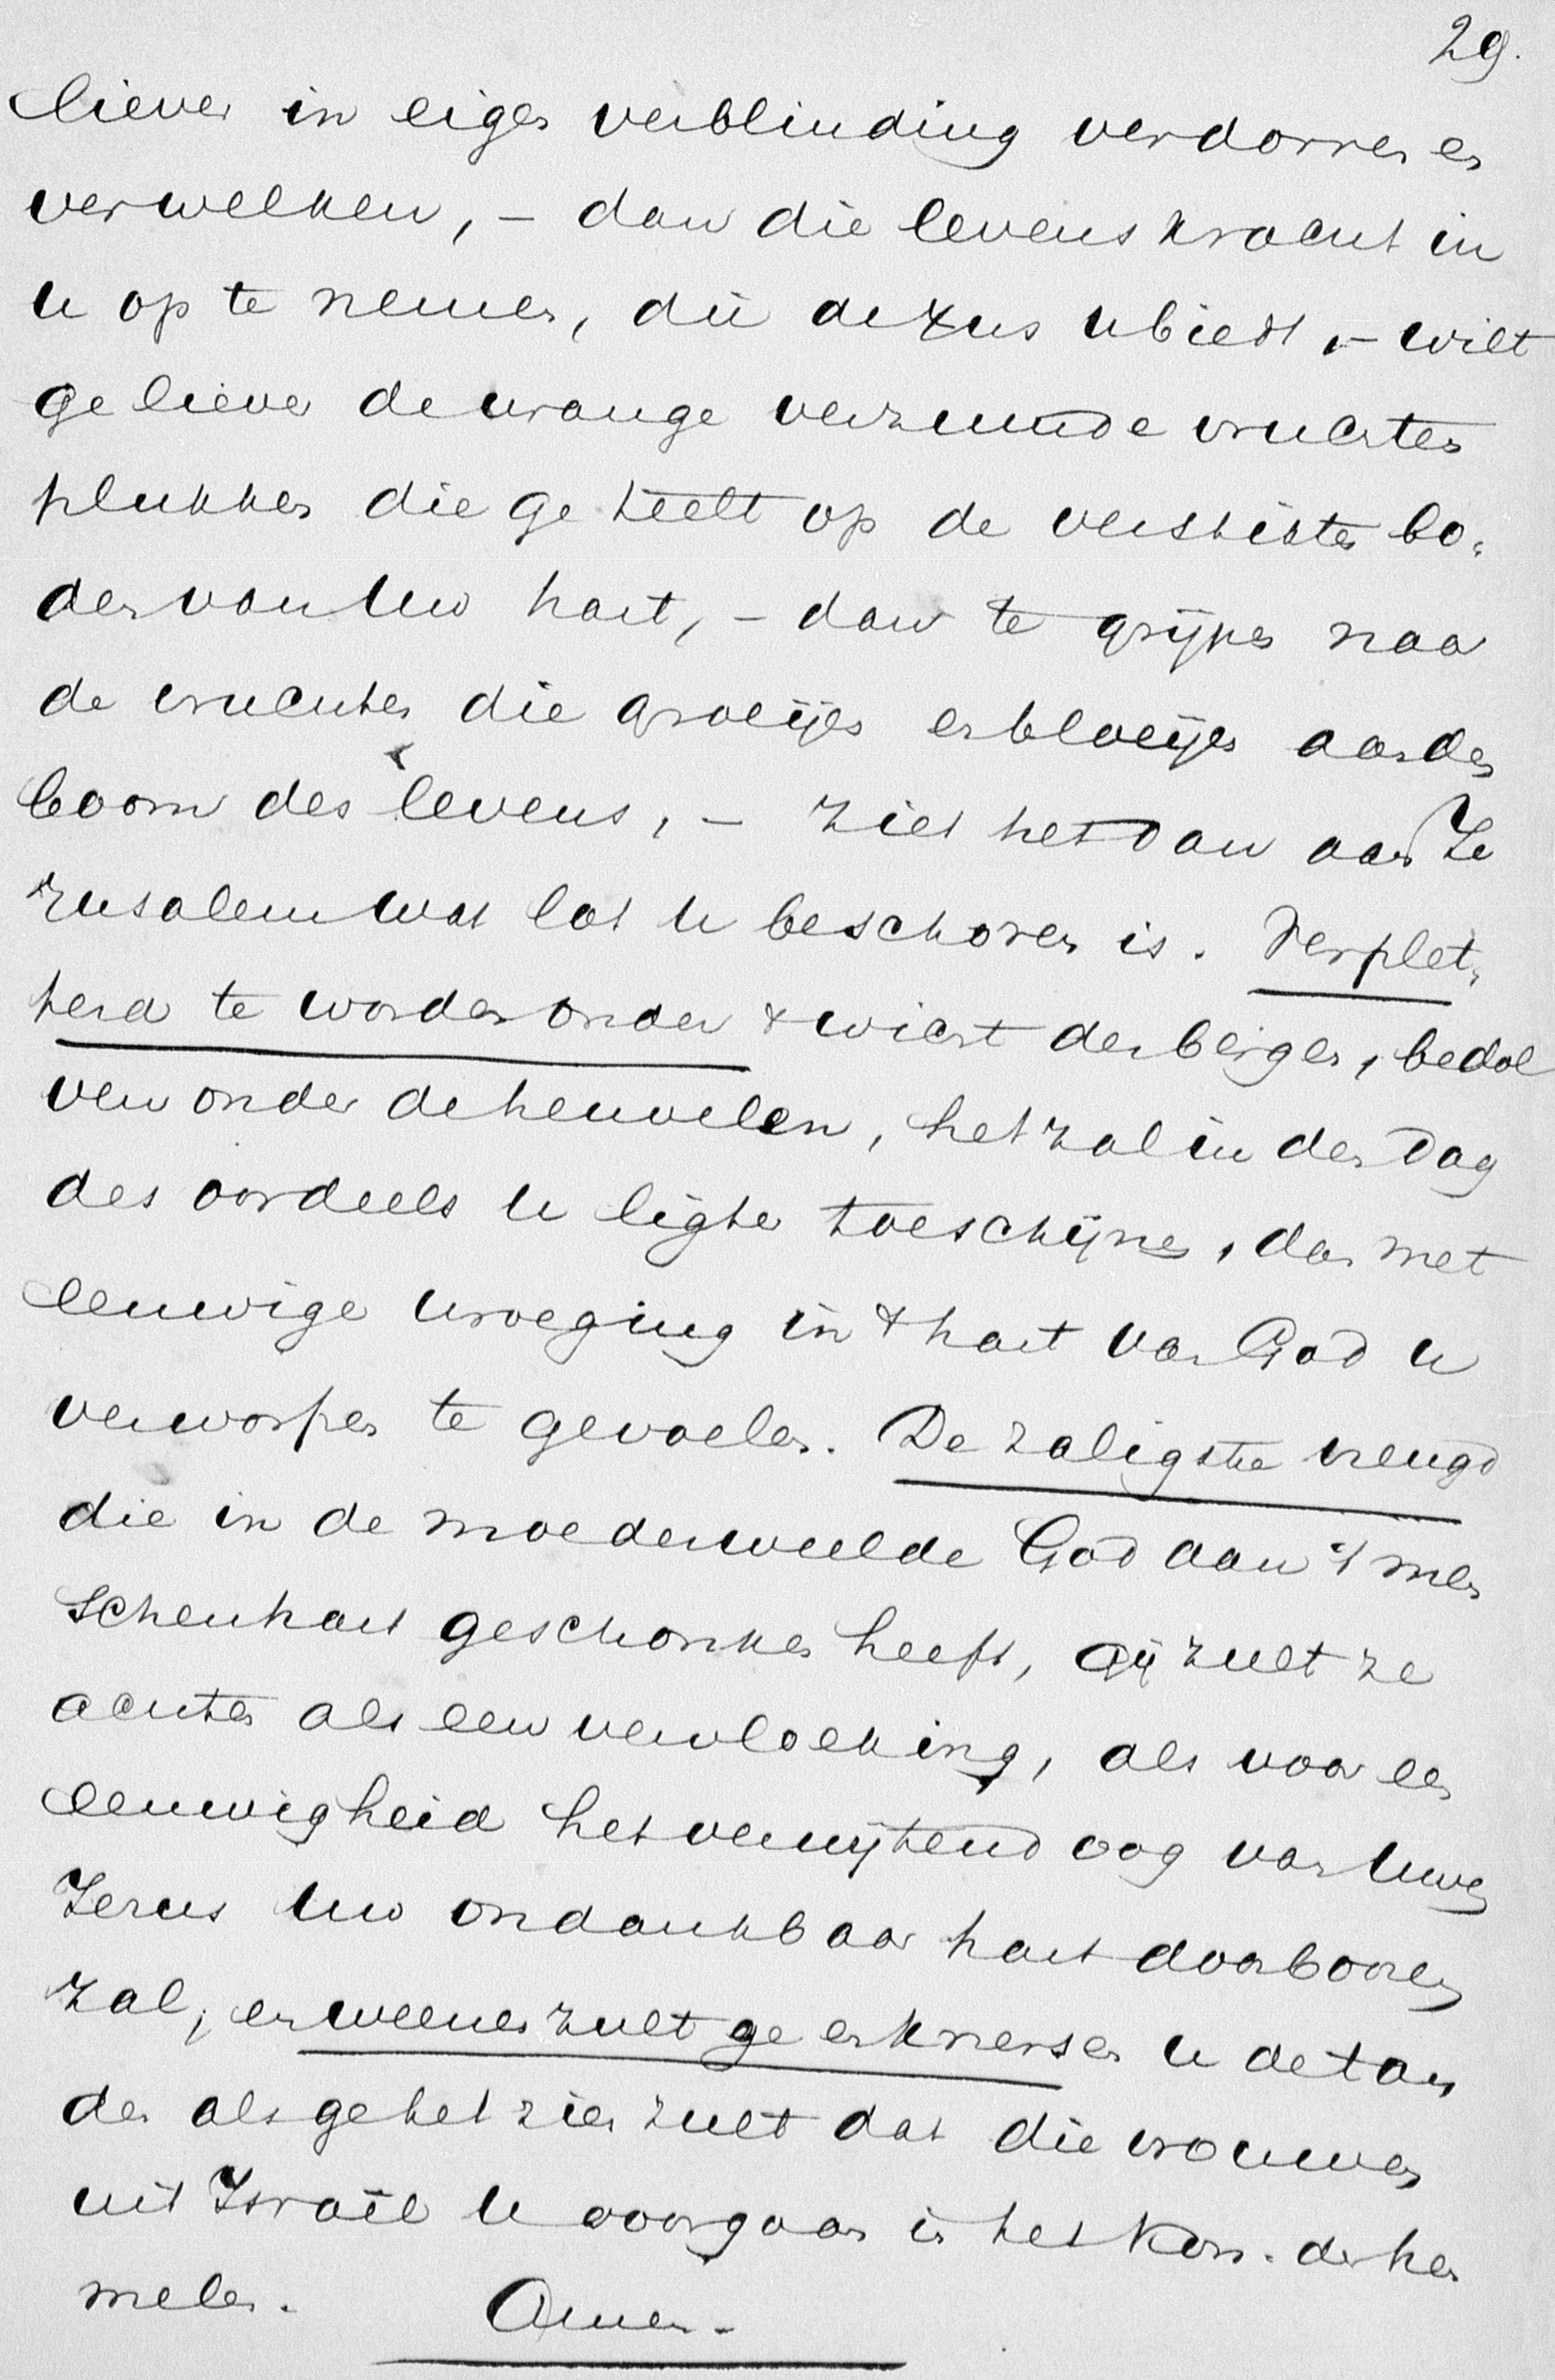 29.
liever in eigen verblinding verdorren en
verwelken, – dan die levenskracht in
u op te nemen, die Jezus u biedt, – wilt
ge liever de wrange verzuurde vruchten
plukken die ge teelt op de verstikte bo-
den van Uw hart, – dan te grijpen naar
de vruchten die groeijen en bloeijen aan den
boom des levens, – ziet het dan aan Je
ruzalem wat lot u beschoren is. Verplet-
terd te worden onder 't wicht der bergen, bedol
ven onder de heuvelen, het zal in den dag
des oordeels u ligter toeschijnen, dan met
eeuwige wroeging in 't hart van God u
verworpen te gevoelen. De zaligste vreugd
die in de moederweelde God aan 't men
schenhart geschonken heeft, gij zult ze
achten als een vervloeking, als voor een
eeuwigheid het verwijtend oog van Uwen
Jezus Uw ondankbaar hart doorboren
zal, en weenen zult ge en knersen u de tan
den als ge het zien zult dat die vrouwen
uit Israël u voorgaan in het Kon. der he
melen. Amen.